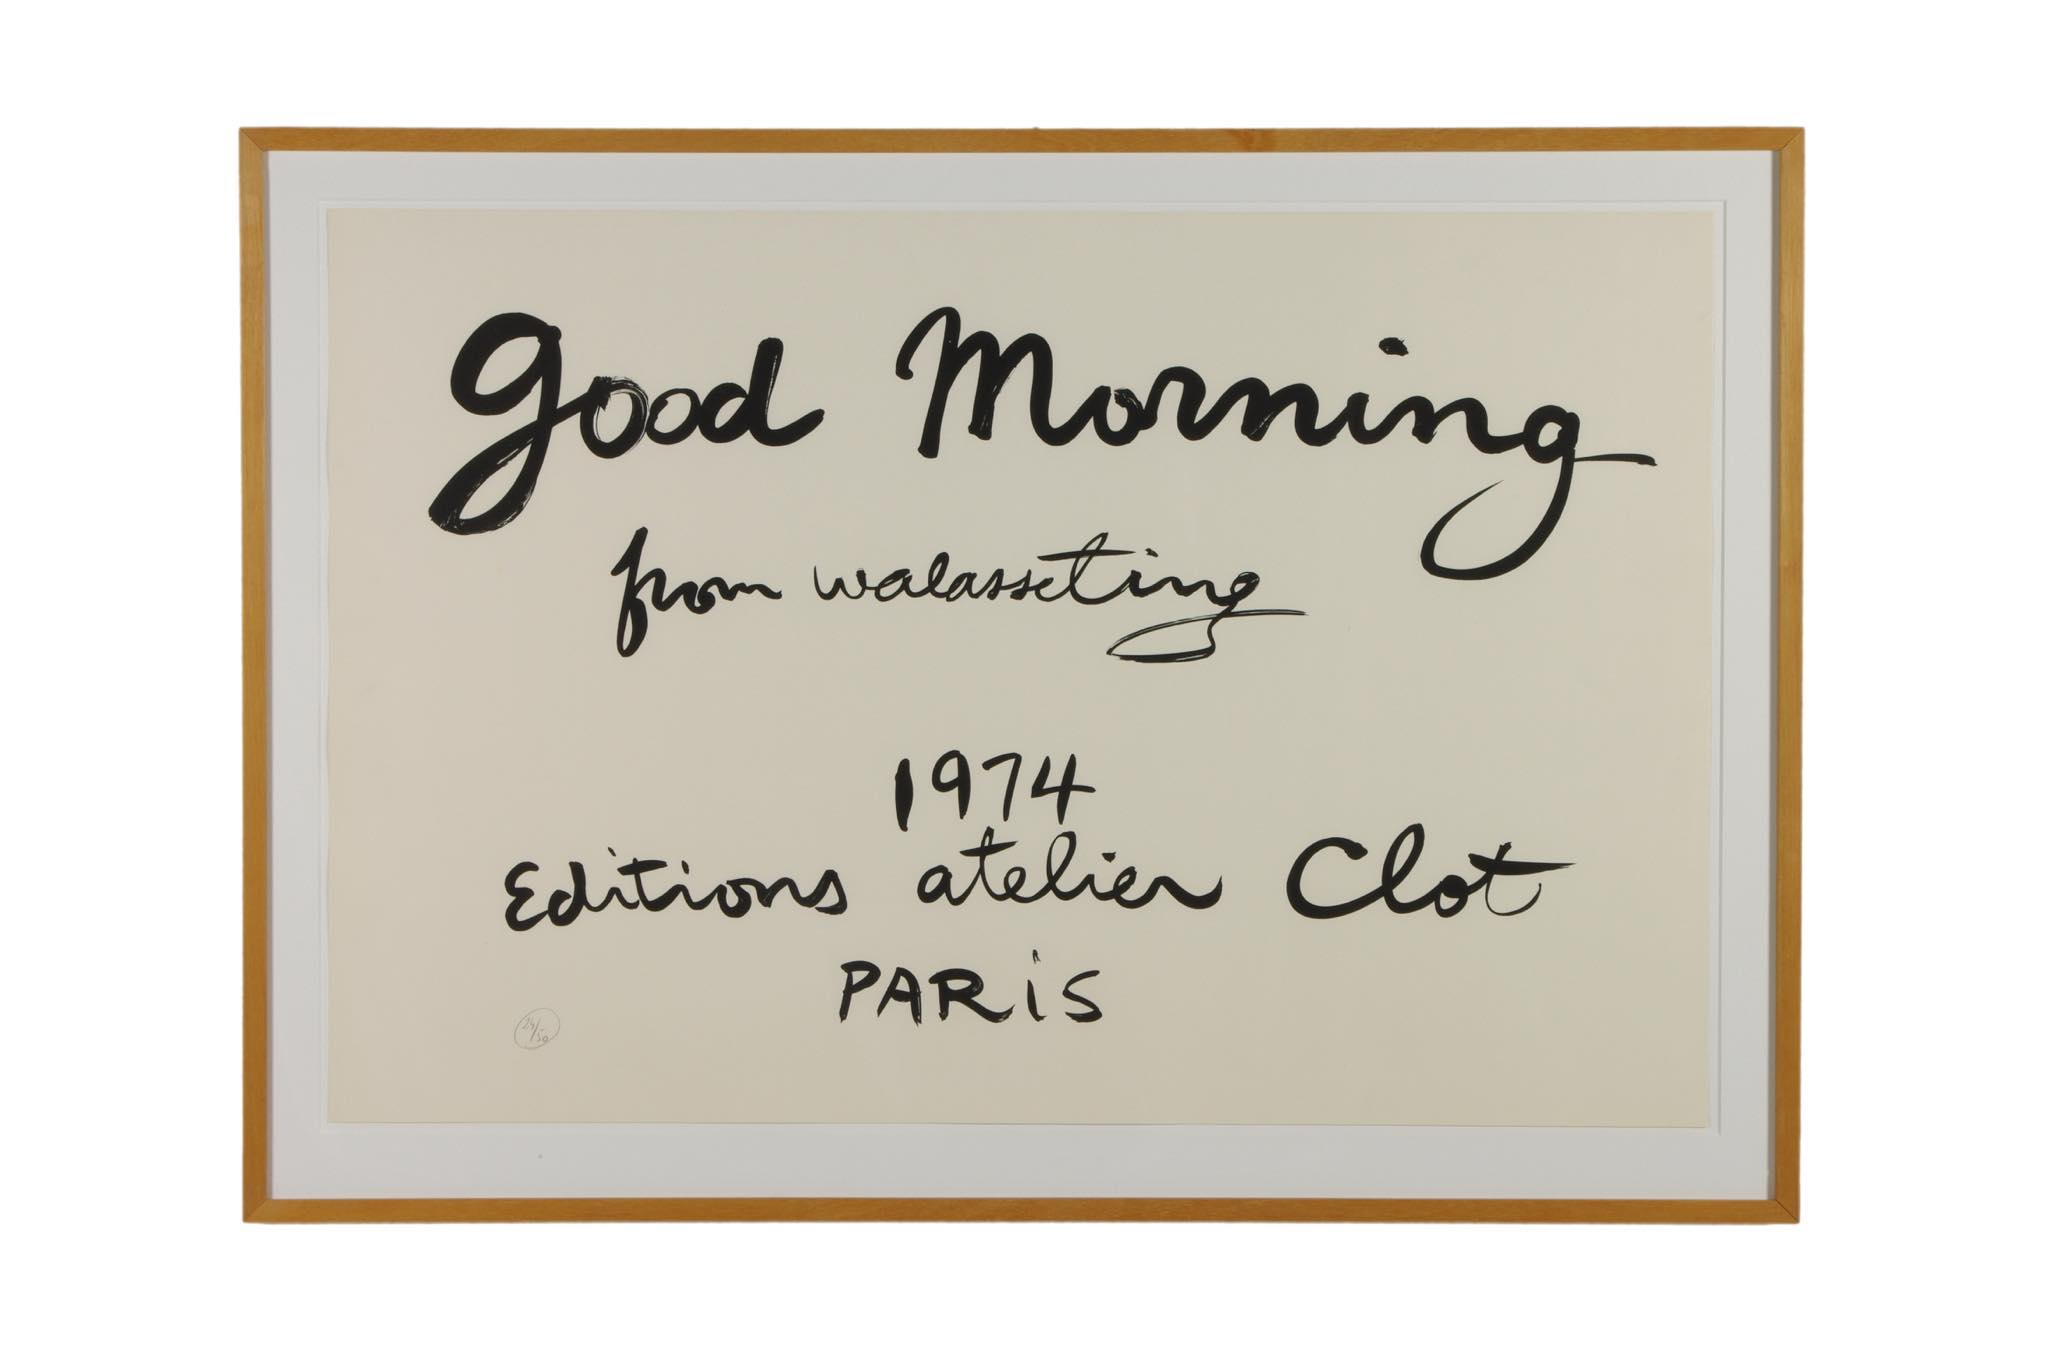 good Morning
from walasseting
1974
Editions atelier Clot
PARiS
24/50